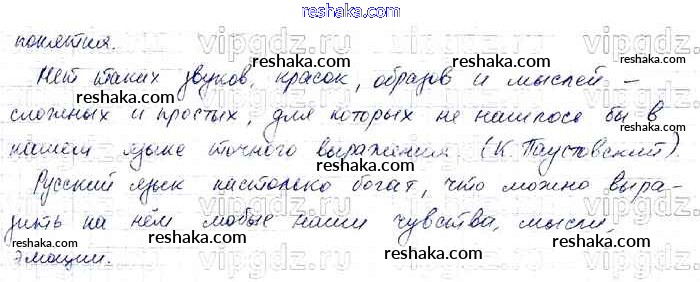 reshaka.com
понятия.
Нет таких звуков, красок, образов и мыслей –
сложных и простых, для которых не нашлось бы в
нашем языке точного выражения (К. Паустовский).
Русский язык настолько богат, что можно выра-
зить на нём любые наши чувства, мысли,
эмоции.
reshaka.com
reshaka.com
reshaka.com
reshaka.com
reshaka.com
reshaka.com
reshaka.com
reshaka.com
vipgdz.ru
vipgdz.ru
vipgdz.ru